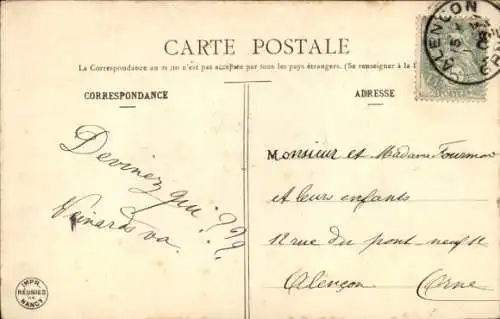 CARTE POSTALE
La Correspondance au recto n'est pas acceptée par tous les pays étrangers. (Se renseigner à la
CORRESPONDANCE
ADRESSE
ALENÇON
ORNE
POSTES
Devinez qui ???
va.
Monsieur et Madame Fourmon
et leurs enfants
12 rue du pont-neuf
Alençon Orne
IMPR.
RÉUNIES
DE
NANCY